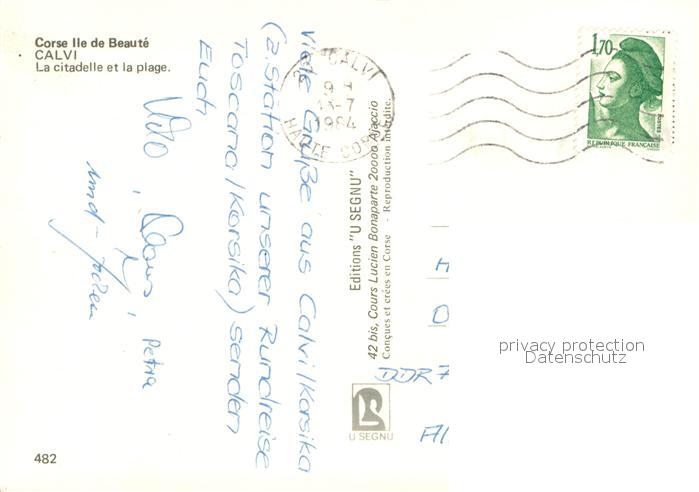 Corse Ile de Beauté
CALVI
La citadelle et la plage.
Viele Grüße aus Calvi/Korsika
(2. Station unserer Rundreise
Toscana/Korsika) senden
Euch
Claus,
Petra
und
Editions "U SEGNU"
42 bis, Cours Lucien Bonaparte 20000 Ajaccio
Conçues et créées en Corse - Reproduction Interdite.
U SEGNU
20 CALVI
9 H
13-7
1984
HAUTE CORSE
1,70
POSTES
REPUBLIQUE FRANÇAISE
DDR 7
privacy protection
Datenschutz
482